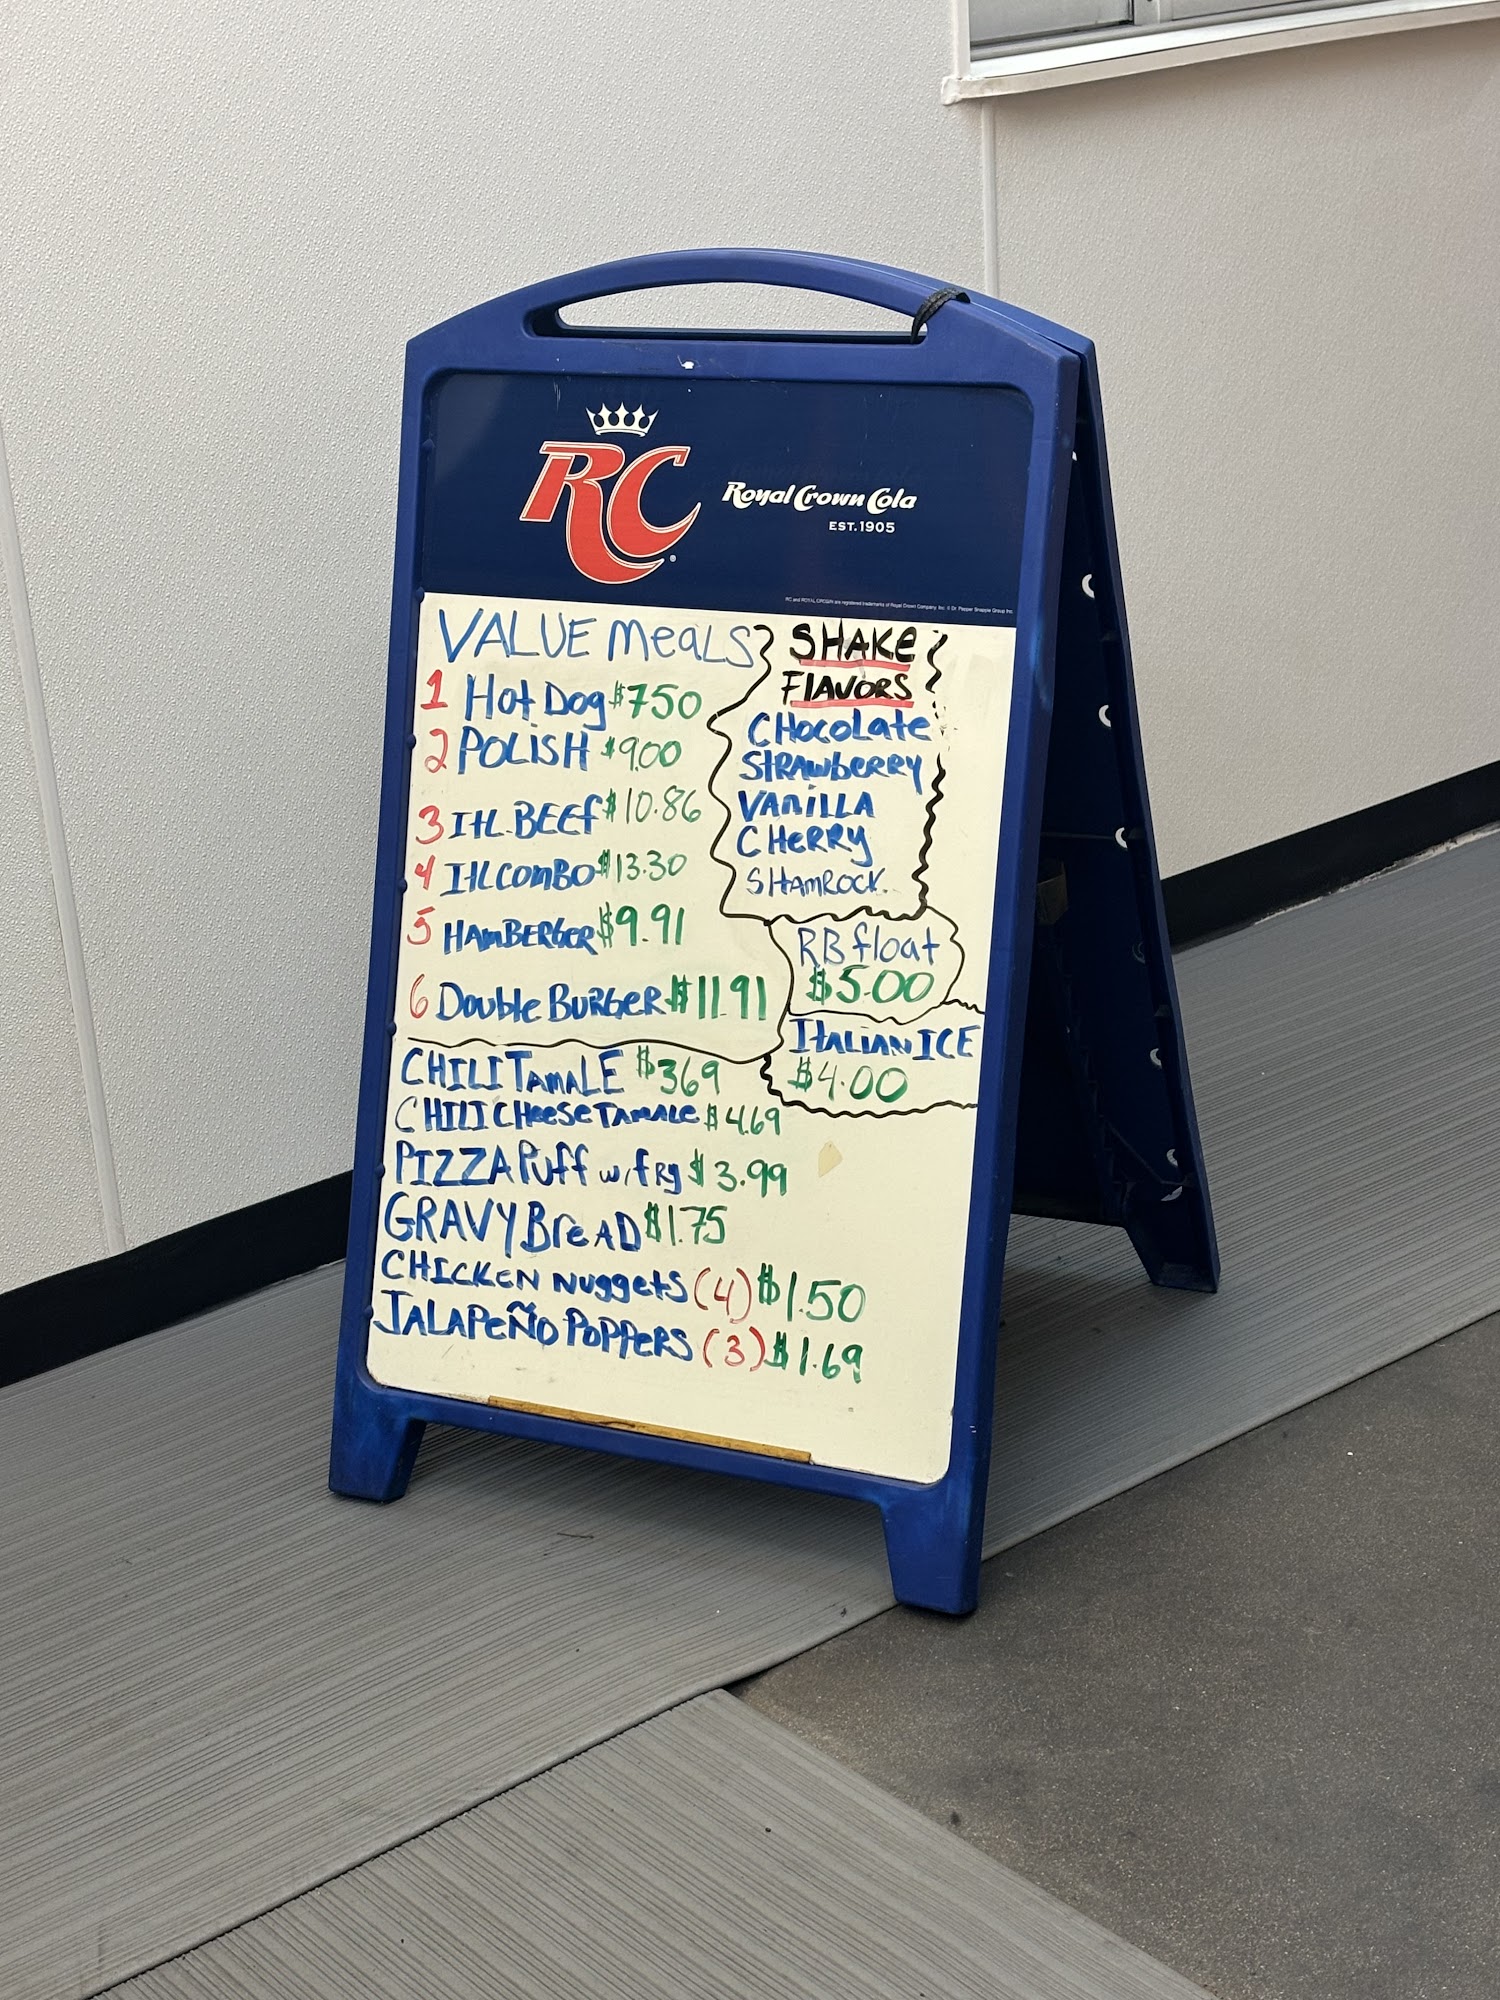 RC
Royal Crown Cola
EST. 1905
RC and ROYAL CROWN are registered trademarks of Royal Crown Company, Inc. © Dr Pepper Snapple Group Inc.
VALUE MeALS
1 Hot Dog $750
2 POLISH $9.00
3 ItL. BEEf $10.86
4 ItL COMBO $13.30
5 HAMBERGER $9.91
6 Double BURGER $11.91
CHILI TAMALE $369
CHILI CHeeSe TAMALE $4.69
PIZZA Puff w/fry $3.99
GRAVY BreAD $1.75
CHICKEN nuggets (4) $1.50
JALAPEÑO POPPERS (3) $1.69
SHAKe
FlAVORS
CHocoLate
STRAWbeRRY
VANiLLA
CHeRRy
SHAMROCK.
RB float
$5.00
ITALIAN ICE
$4.00